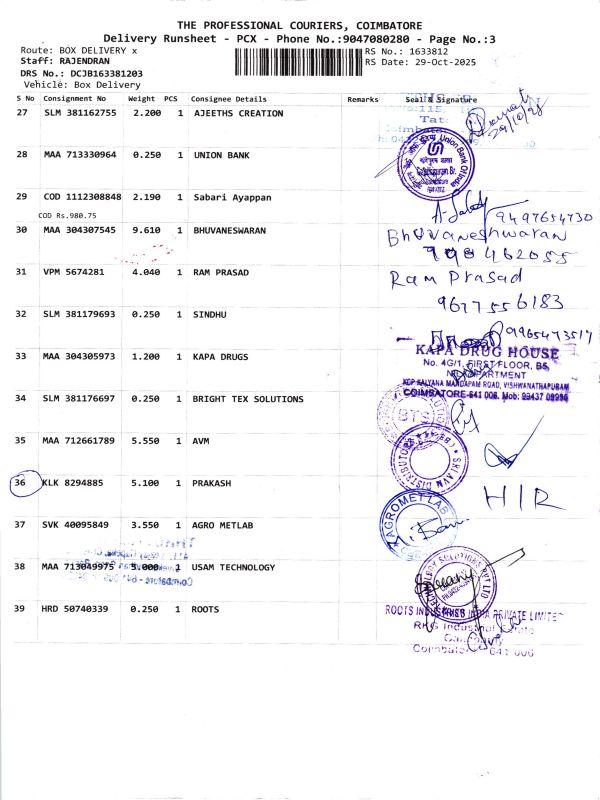 THE PROFESSIONAL COURIERS, COIMBATORE
Delivery Runsheet - PCX - Phone No.:9047080280 - Page No.:3
Route: BOX DELIVERY x
RS No.: 1633812
Staff: RAJENDRAN
RS Date: 29-Oct-2025
DRS No.: DCJB163381203
Vehicle: Box Delivery
S No Consignment No Weight PCS Consignee Details Remarks Seal & Signature
27 SLM 381162755 2.200 1 AJEETHS CREATION
28 MAA 713330964 0.250 1 UNION BANK
Union Bank Of India
29 COD 1112308848 2.190 1 Sabari Ayappan
COD Rs.980.75
9497654730
30 MAA 304307545 9.610 1 BHUVANESWARAN
Bhuvaneshwaran
31 VPM 5674281 4.040 1 RAM PRASAD
Ram Prasad
9677556183
32 SLM 381179693 0.250 1 SINDHU
9965473517
33 MAA 304305973 1.200 1 KAPA DRUGS
KAPA DRUG HOUSE
No. 4G/1, FIRST FLOOR, B5,
APARTMENT
KALYANA MANDAPAM ROAD, VISHWANATHAPURAM
COIMBATORE-641 006. Mob: 99437 08996
34 SLM 381176697 0.250 1 BRIGHT TEX SOLUTIONS
BTS
35 MAA 712661789 5.550 1 AVM
SRI AVM DISTRIBUTORS
36 KLK 8294885 5.100 1 PRAKASH
H/R
37 SVK 40095849 3.550 1 AGRO METLAB
AGROMETLAB
38 MAA 713049975 5.000 1 USAM TECHNOLOGY
SOLUTIONS PVT LTD
39 HRD 50740339 0.250 1 ROOTS
ROOTS INDUSTRIES INDIA PRIVATE LIMITED
RKG Industrial Estate
Ganapathy
Coimbatore 641 006